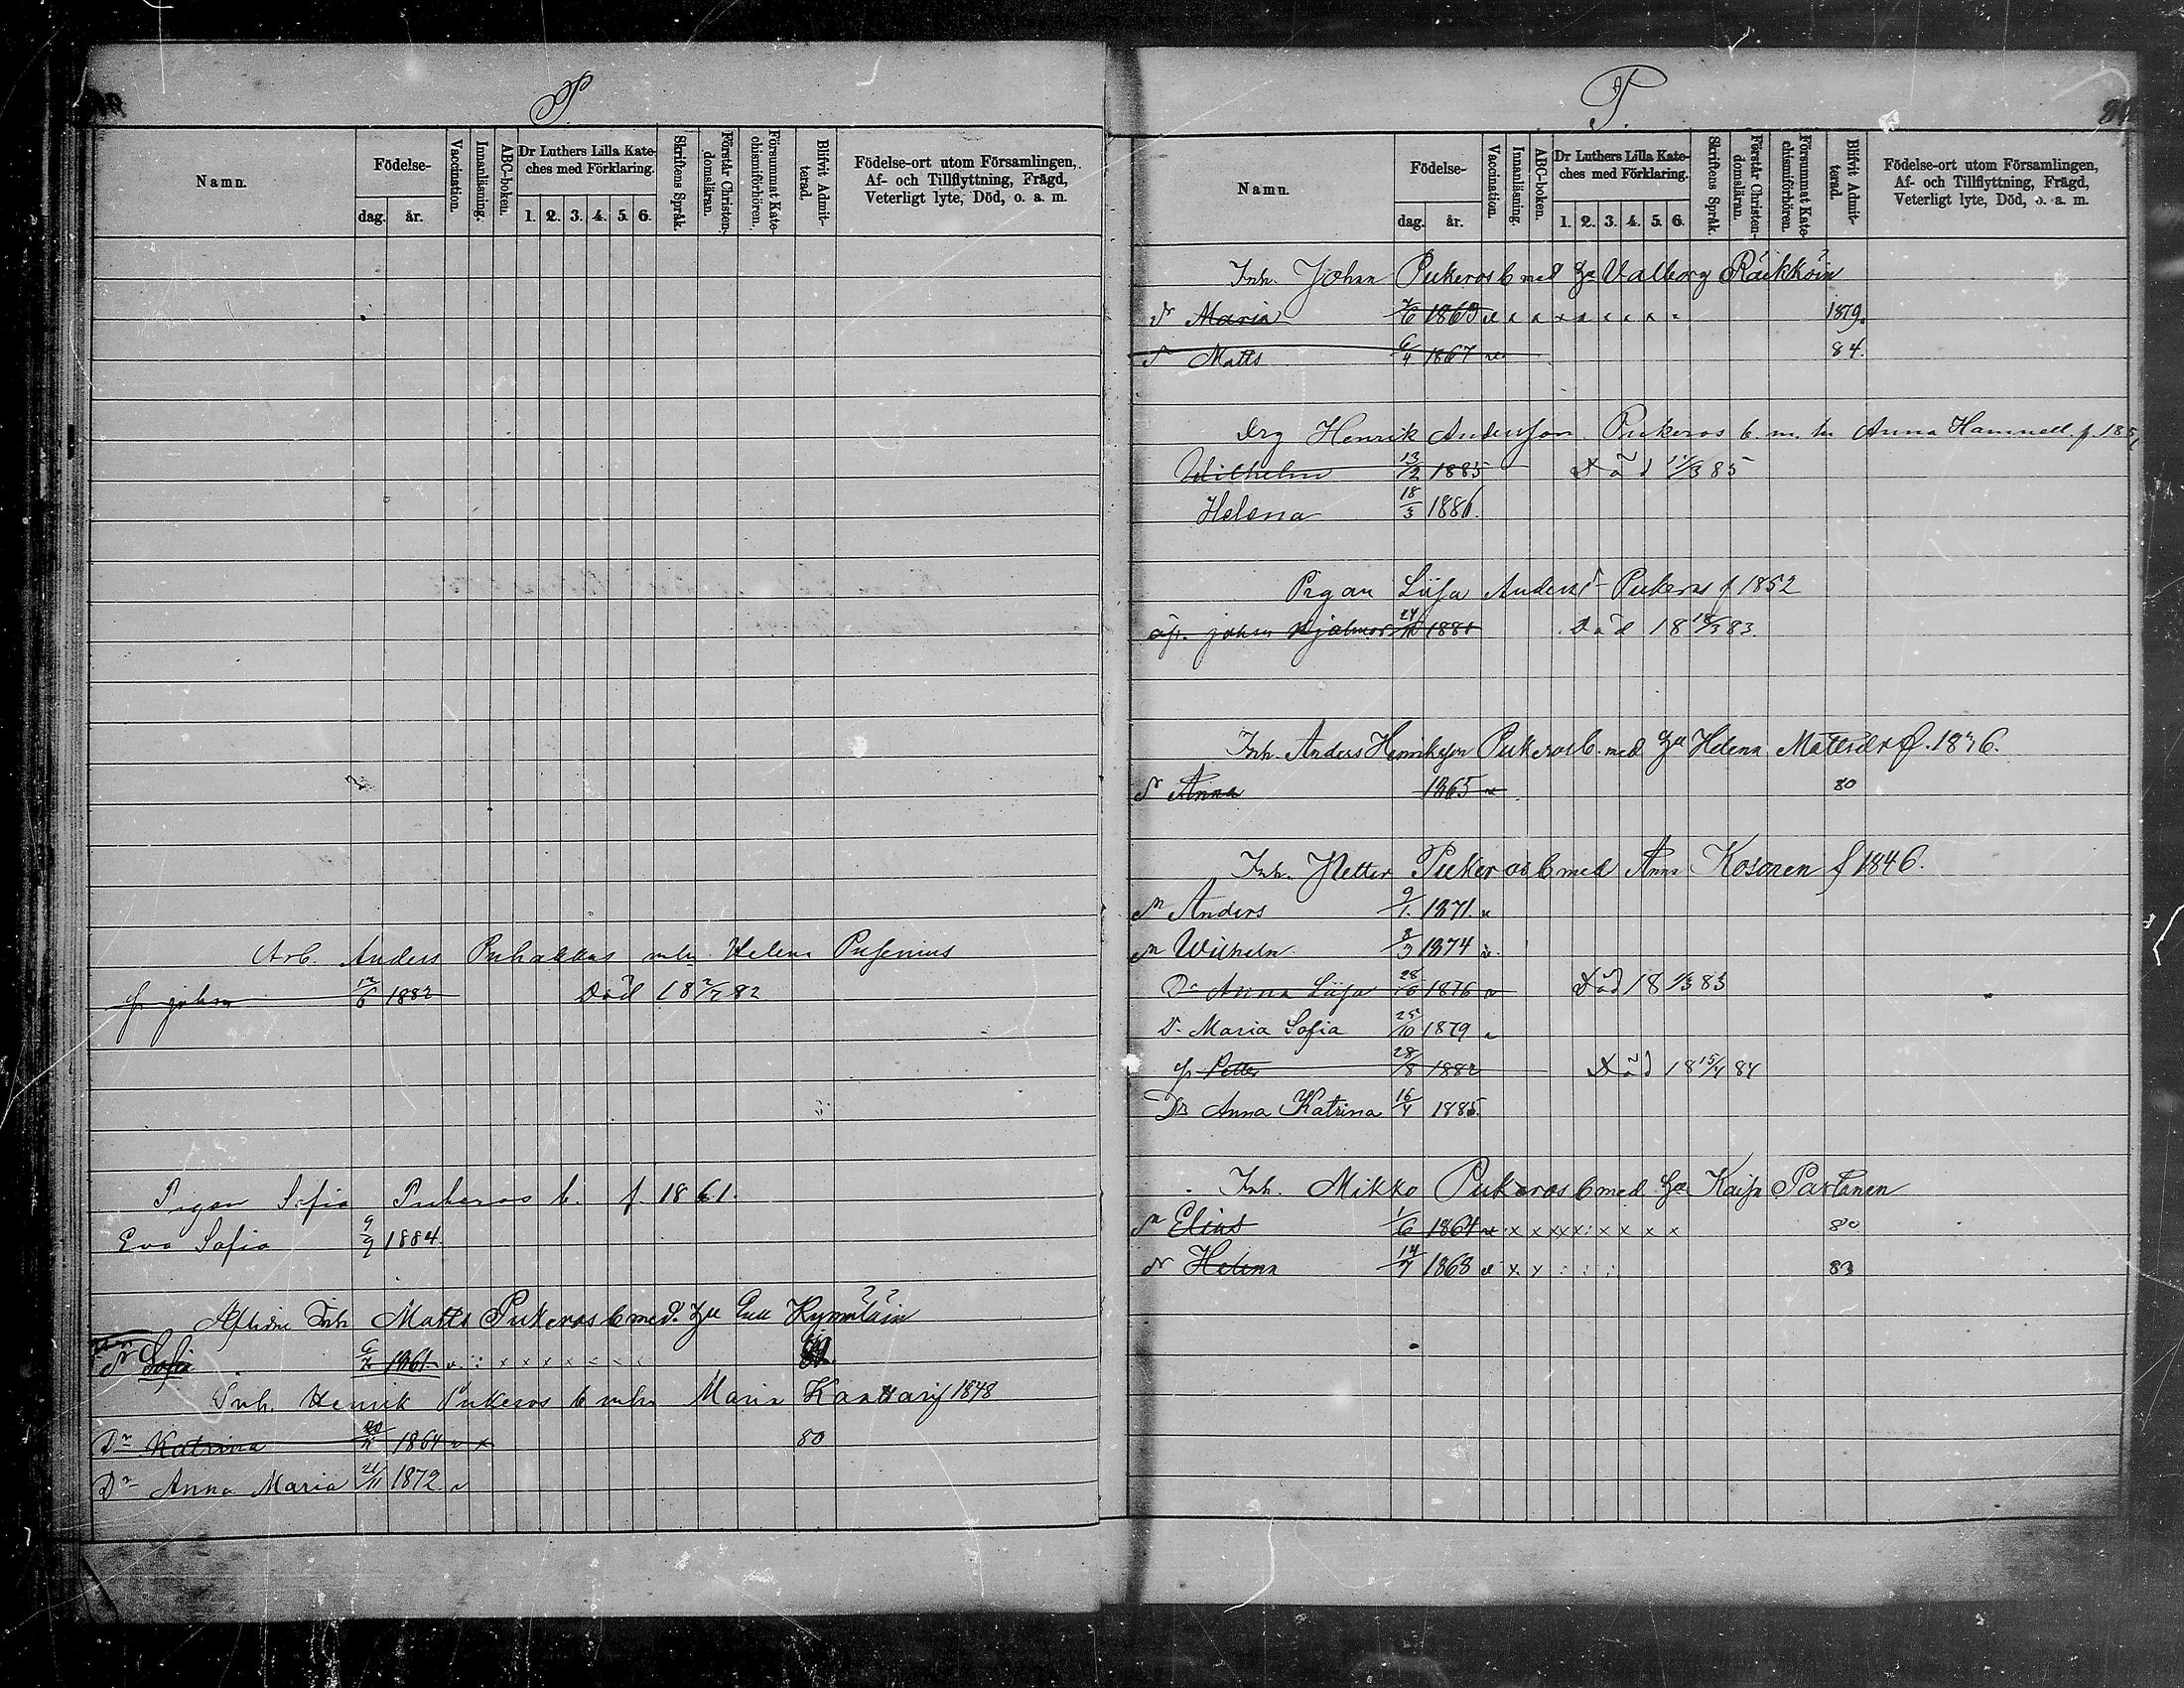 P.
Namn.
Födelse-
dag. år.
Vaccination.
Innanläsning.
ABC-boken.
Dr Luthers Lilla Kate-
ches med Förklaring.
1. 2. 3. 4. 5. 6.
Skriftens Språk.
Förstår Christen-
domsläran.
Försummat Kate-
chismiförhören.
Blifvit Admit-
terad.
Födelse-ort utom Församlingen,
Af- och Tillflyttning, Frägd,
Veterligt lyte, Död, o. a. m.
Arb. Anders Puhakkas Helena Pusenius
johan 1882 Död 18 2/7 82
Pigan Sofia Pukeros b. f. 1861.
Eva Sofia 9/9 1884.
Aflidne Inh Matts Pukeros b med Eva Kymäläin
Sofia 1861 v x x x x
Inh. Henrik Pukeros b mhu Maria 1848
Dr Katrina 1864 v x 80
Dr Anna Maria 21/11 1872 v
P.
Namn.
Födelse-
dag. år.
Vaccination.
Innanläsning.
ABC-boken.
Dr Luthers Lilla Kate-
ches med Förklaring.
1. 2. 3. 4. 5. 6.
Skriftens Språk.
Förstår Christen-
domsläran.
Försummat Kate-
chismiförhören.
Blifvit Admit-
terad.
Födelse-ort utom Församlingen,
Af- och Tillflyttning, Frägd,
Veterligt lyte, Död, o. a. m.
Inh. Johan Pukeros b med Hu Valborg Räikköin
dr Maria 1863 v 1879.
Matts 6/4 1867 v 84.
Drg Henrik Andersson Pukeros b. m. hu Anna Hamnell f. 185
Wilhelm 13/2 1885 Död 11/3 85
Helena 18/3 1886.
Pigan Liisa Andersdr Pukeros f 1852
johan Hjalmar 1881 Död 18 18/3 83.
Inh. Anders Henriksson Pukeros b. med Hu Helena Mattsdr f. 1836.
dr Anna 1865 v 80
Inh. Petter Pukeros b med Anna Kosonen f 1846.
Sn Anders 9/1. 1871. v
Sn Wilhelm 8/3 1874 v.
Dr Anna Liisa 1876 v Död 18 1/3 83
Dr Maria Sofia 25/10 1879 v
Petter 28/8 1882 Död 18 15/4 84
Dr Anna Katrina 16/4 1885
Inh. Mikko Pukeros b med Hu Kaisa Partanen
Sn Elias 1/6 1864 v x x x x x x x x 80
dr Helena 14/7 1868 v x x 83